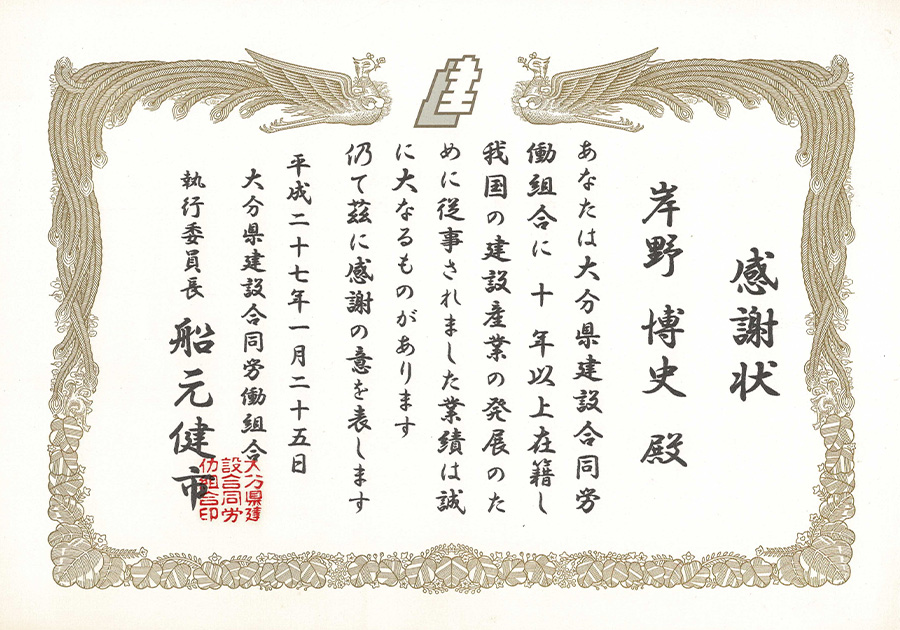 感謝状
岸野 博史 殿
あなたは大分県建設合同労
働組合に 十 年以上在籍し
我国の建設産業の発展のた
めに従事されました業績は誠
に大なるものがあります
仍て茲に感謝の意を表します
平成二十七年一月二十五日
大分県建設合同労働組合
執行委員長 船元健市
大分県建
設合同労
仂組合印